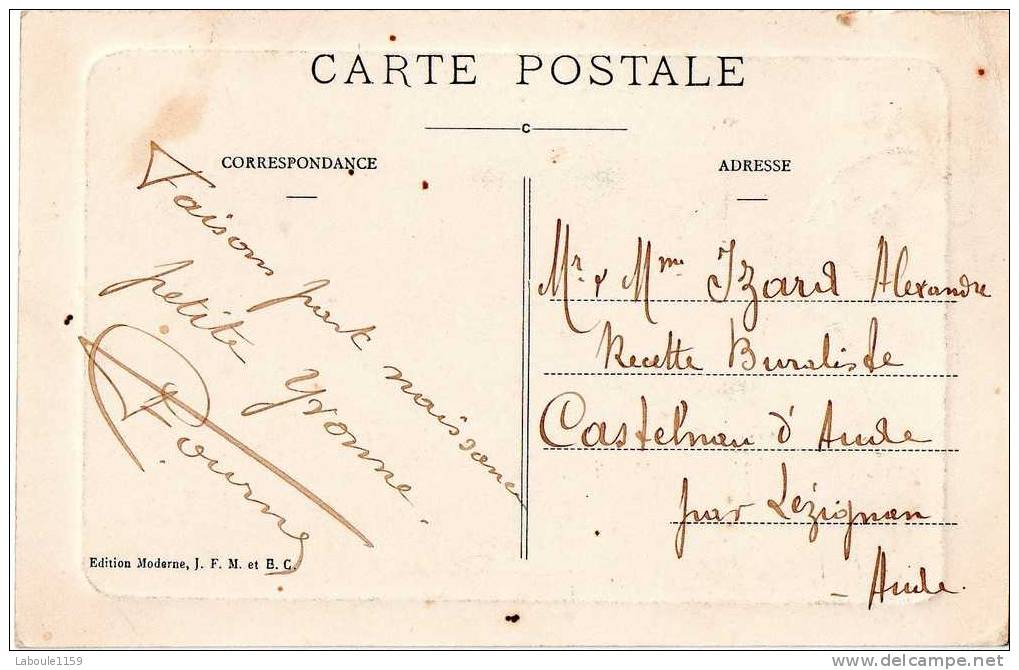 CARTE POSTALE
C
CORRESPONDANCE
Faisons part naissance
petite Yvonne.
Edition Moderne, J. F. M. et B. C.
ADRESSE
Mr & Mme Izard Alexandre
Recette Buraliste
Castelnau d'Aude
par Lézignan
- Aude.
Laboule1159
delcampe.net